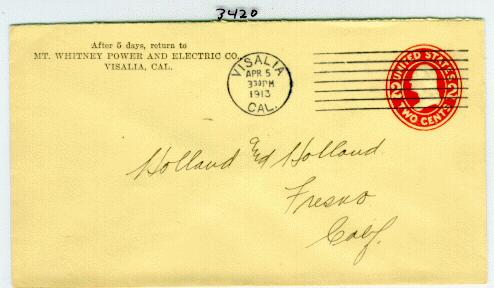 3420
After 5 days, return to
MT. WHITNEY POWER AND ELECTRIC CO.
VISALIA, CAL.
VISALIA
APR. 5
330PM
1913
CAL.
UNITED STATES
2 TWO CENTS 2
Holland & Holland
Fresno
Calf.